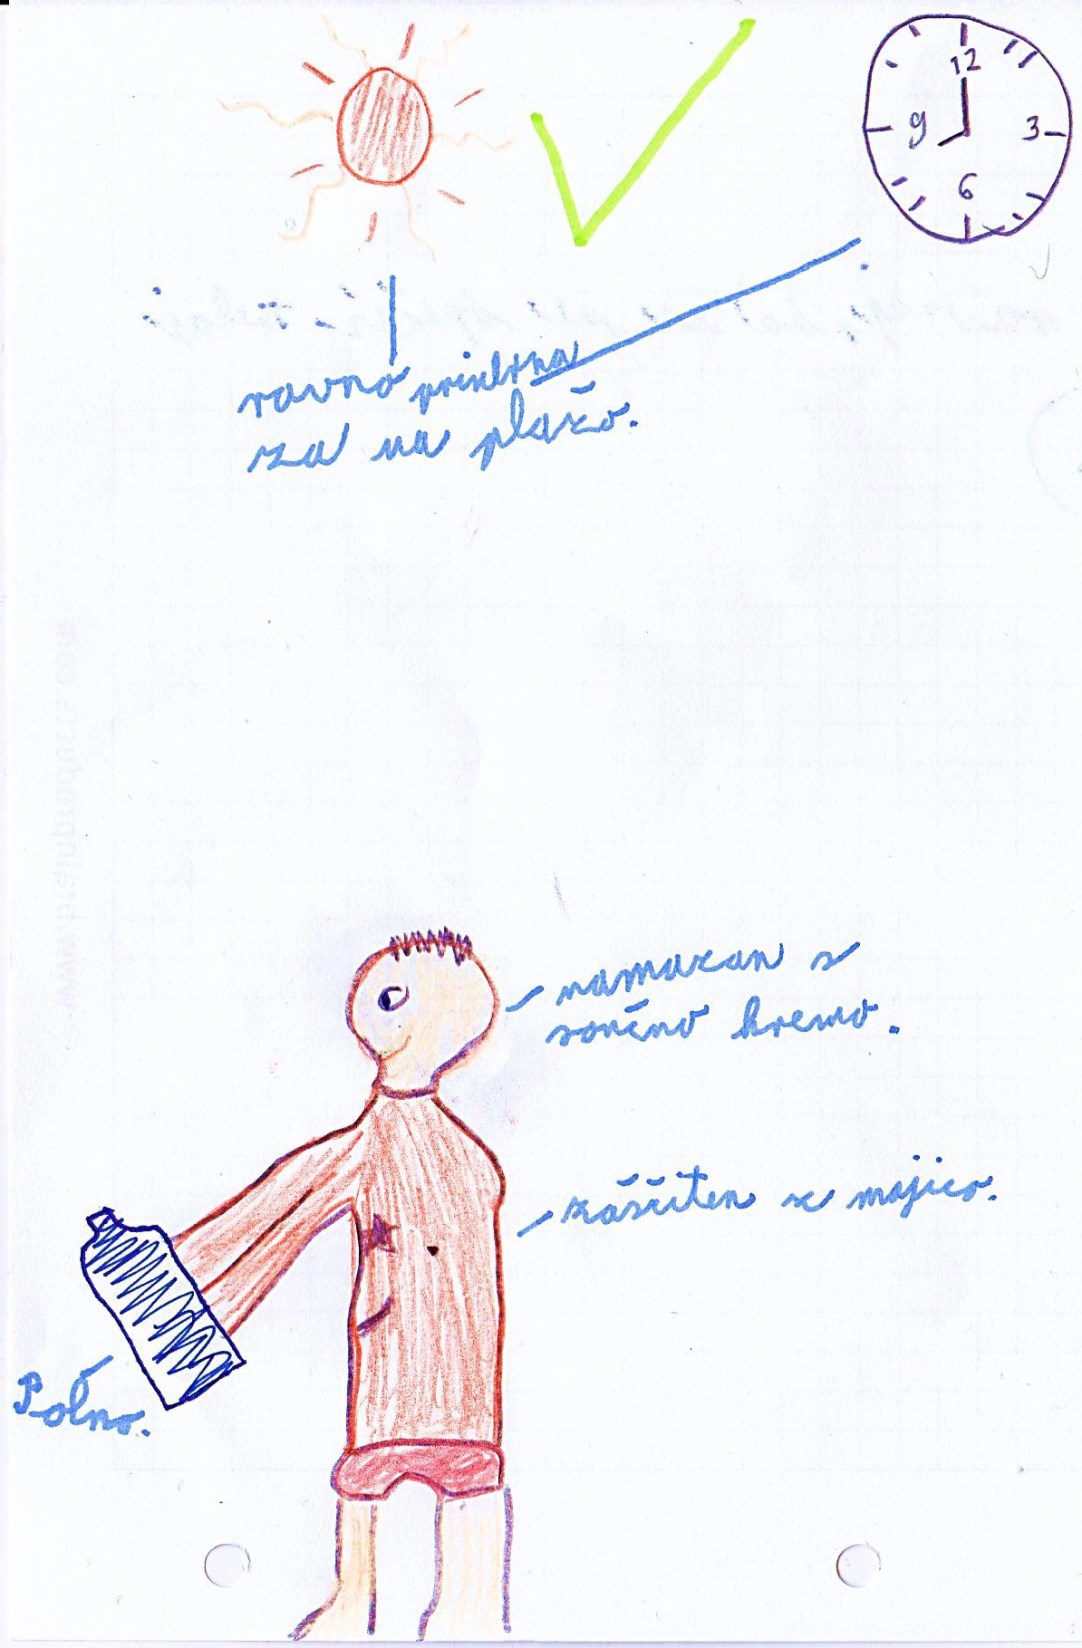 12
9 3
6
ravno primerna
za na plažo.
namazan s
sončno kremo.
zaščiten z majico.
Polno.
www.brainproducts.com